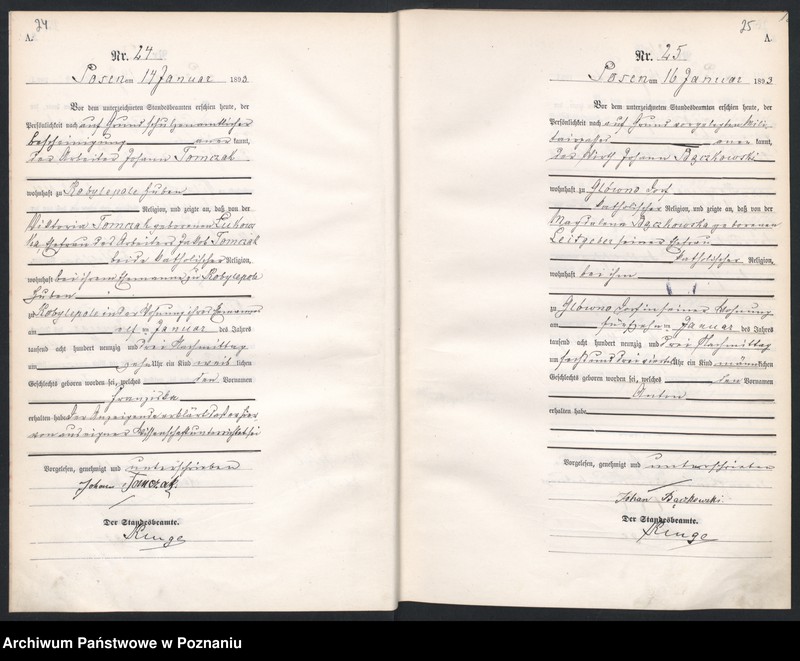 24
A.
Nr. 24
Posen am 14 Januar 1893
Vor dem unterzeichneten Standesbeamten erschien heute, der
Persönlichkeit nach auf Grund schulzenamtlicher
Bescheinigung anerkannt,
der Arbeiter Johann Tomczak
wohnhaft zu Kobylepole Huben
Religion, und zeigte an, daß von der
Viktoria Tomczak geborenen
Ehefrau des Arbeiters Jakob Tomczak
beide katholischer Religion,
wohnhaft bei ihrem Ehemanne zu Kobylepole
Huben
zu Kobylepole in der Wohnung ihres Ehemannes
am elf ten Januar des Jahres
tausend acht hundert neunzig und drei Nachmittag
um zehn Uhr ein Kind weiblichen
Geschlechts geboren worden sei, welches den Vornamen
Franziska
erhalten habe. Der Anzeigende erklärt daß er hier
von aus eigner Wissenschaft unterrichtet sei
Vorgelesen, genehmigt und unterschrieben
Johann Tomczak.
Der Standesbeamte.
25
A.
Nr. 25
Posen am 16 Januar 1893
Vor dem unterzeichneten Standesbeamten erschien heute, der
Persönlichkeit nach auf Grund vorgelegten Mili
tairpasses anerkannt,
der Wirth Johann Bączkowski
wohnhaft zu Glówno Dorf
katholischer Religion, und zeigte an, daß von der
Magdalena Bączkowska geborenen
Leitgeber seiner Ehefrau
katholischer Religion,
wohnhaft bei ihm
zu Glówno Dorf in seiner Wohnung
am fünfzehn ten Januar des Jahres
tausend acht hundert neunzig und drei Nachmittag
um sechs und drei viertel Uhr ein Kind männlichen
Geschlechts geboren worden sei, welches den Vornamen
Anton
erhalten habe.
Vorgelesen, genehmigt und unterschrieben
Johan Bączkowski.
Der Standesbeamte.
Archiwum Państwowe w Poznaniu